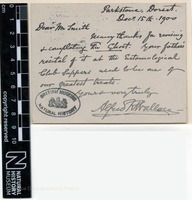 Parkstone, Dorset.
Decr. 15th. 1900
Dear Mr Smith
Many thanks for revising
& completing The Ghost. Your father's
recital of it at the Entomological
Club Suppers used to be one of
our greatest treats.
Yours very truly
Alfred R. Wallace
BRITISH MUSEUM
NATURAL HISTORY
copyright reserved
NATURAL
HISTORY
MUSEUM